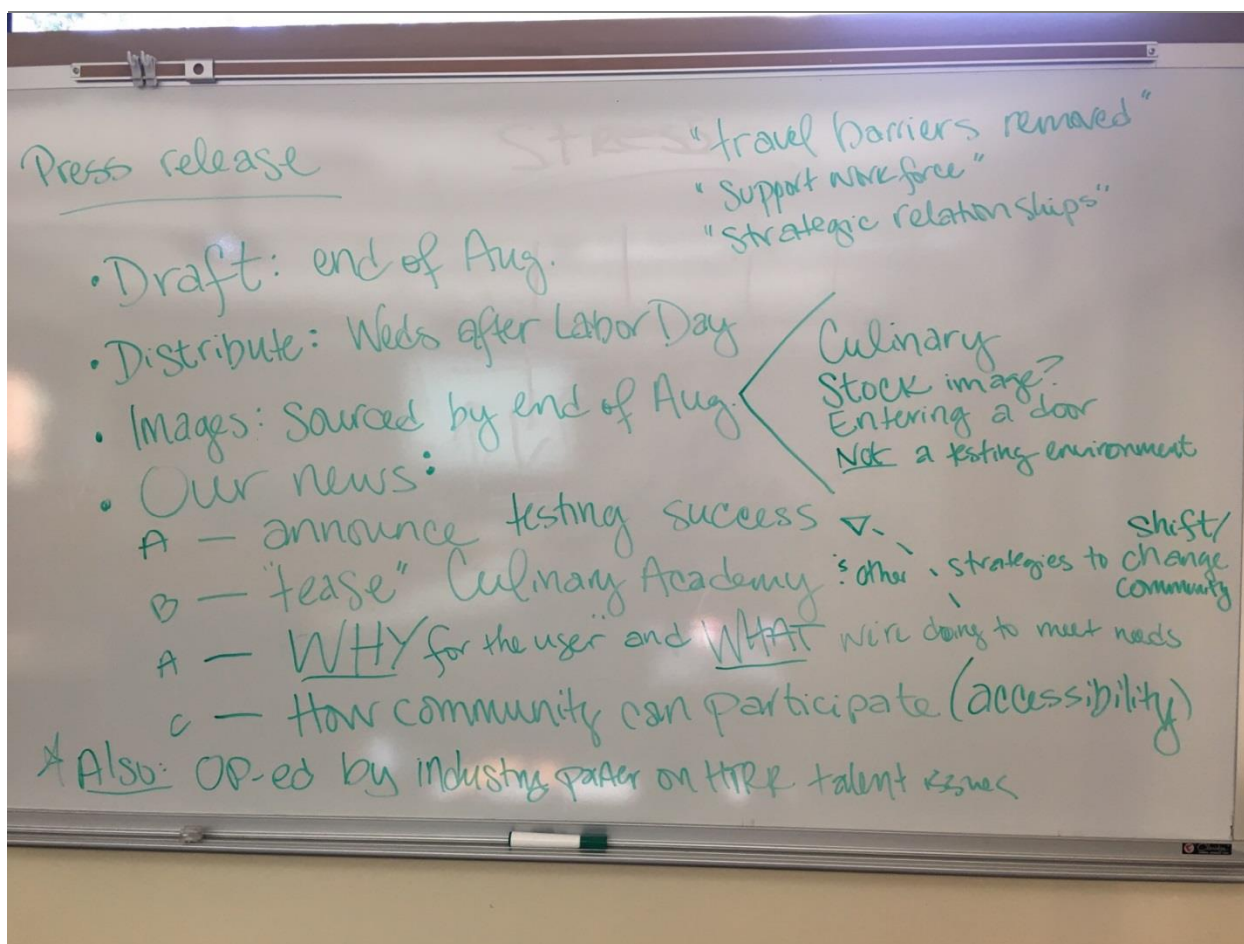 Press release
"travel barriers removed"
"Support workforce"
"Strategic relationships"
• Draft: end of Aug.
• Distribute: Weds after Labor Day
• Images: Sourced by end of Aug.
Culinary
Stock image?
Entering a door
Not a testing environment
• Our news:
A — announce testing success
B — "tease" Culinary Academy
: other strategies to shift/
change
community
A — WHY for the user and WHAT we're doing to meet needs
C — How community can participate (accessibility)
* Also: OP-ed by industry on talent issues
STRESS